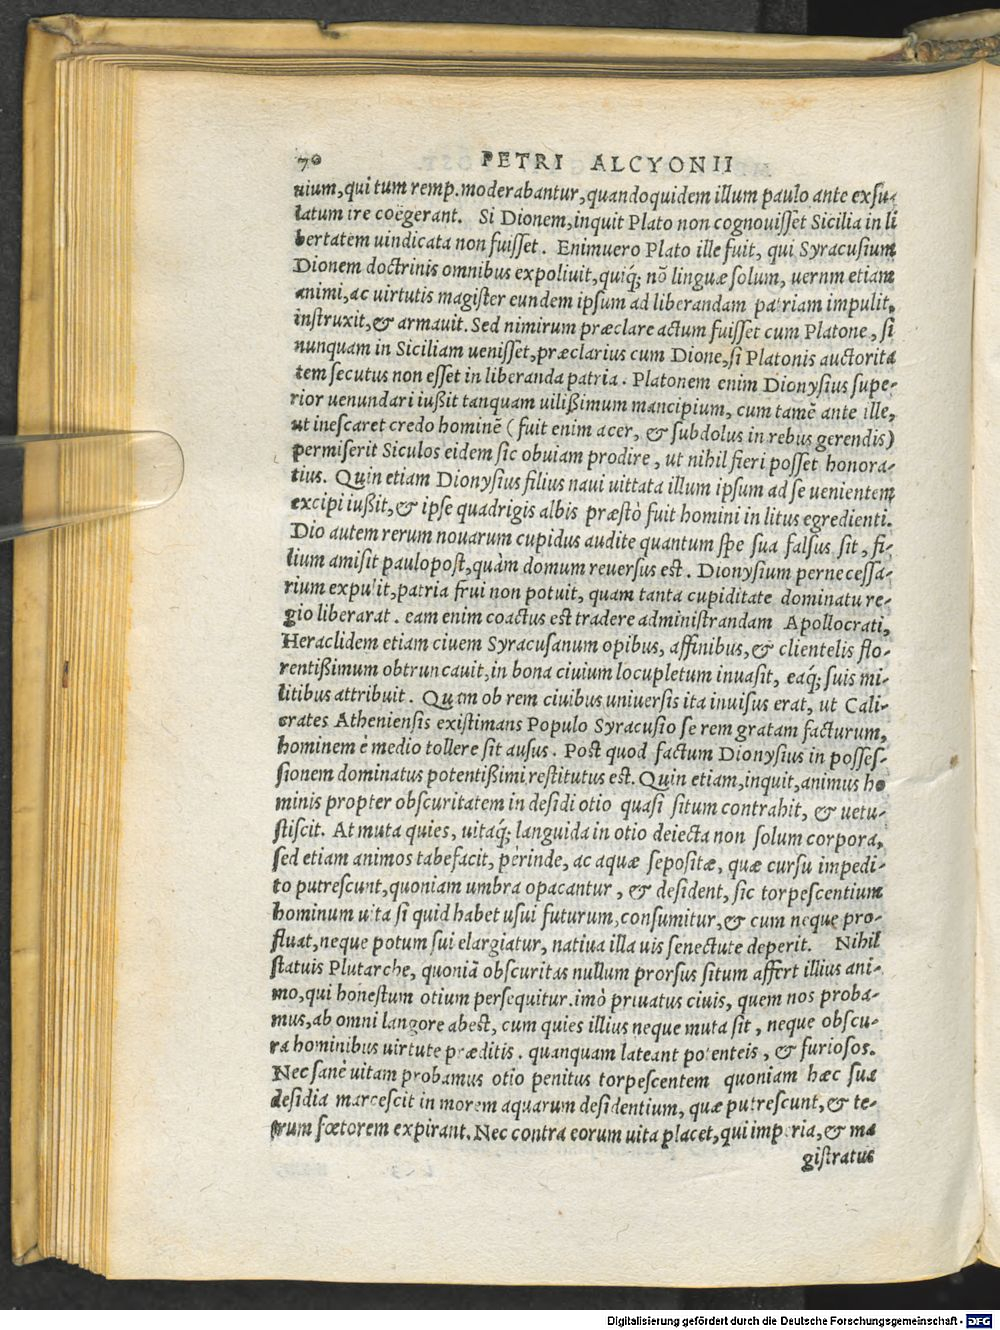 70 PETRI ALCYONII
uium, qui tum remp. moderabantur, quandoquidem illum paulo ante exſu-
latum ire coëgerant. Si Dionem, inquit Plato non cognouiſſet Sicilia in li
bertatem uindicata non fuiſſet. Enimuero Plato ille fuit, qui Syracuſium
Dionem doctrinis omnibus expoliuit, quiq́; nō linguæ ſolum, uernm etiam
animi, ac uirtutis magiſter eundem ipſum ad liberandam patriam impulit,
inſtruxit, & armauit. Sed nimirum præclare actum fuiſſet cum Platone, ſi
nunquam in Siciliam ueniſſet, præclarius cum Dione, ſi Platonis auctorita
tem ſecutus non eſſet in liberanda patria. Platonem enim Dionyſius ſupe-
rior uenundari iußit tanquam uilißimum mancipium, cum tamē ante ille,
ut ineſcaret credo hominē (fuit enim acer, & ſubdolus in rebus gerendis)
permiſerit Siculos eidem ſic obuiam prodire, ut nihil fieri poſſet honora-
tius. Quin etiam Dionyſius filius naui uittata illum ipſum ad ſe uenientem
excipi iußit, & ipſe quadrigis albis præſtò fuit homini in litus egredienti.
Dio autem rerum nouarum cupidus audite quantum ſpe ſua falſus ſit, fi-
lium amiſit paulopoſt, quàm domum reuerſus eſt. Dionyſium perneceſſa-
rium expulit, patria frui non potuit, quam tanta cupiditate dominatu re-
gio liberarat. eam enim coactus eſt tradere adminiſtrandam Apollocrati,
Heraclidem etiam ciuem Syracuſanum opibus, affinibus, & clientelis flo-
rentißimum obtruncauit, in bona ciuium locupletum inuaſit, eaq́; ſuis mi-
litibus attribuit. Quam ob rem ciuibus uniuerſis ita inuiſus erat, ut Cali-
crates Athenienſis exiſtimans Populo Syracuſio ſe rem gratam facturum,
hominem è medio tollere ſit auſus. Poſt quod factum Dionyſius in poſſeſ-
ſionem dominatus potentißimi reſtitutus eſt. Quin etiam, inquit, animus ho
minis propter obſcuritatem in deſidi otio quaſi ſitum contrahit, & uetu-
ſtiſcit. At muta quies, uitaq́; languida in otio deiecta non ſolum corpora,
ſed etiam animos tabefacit, perinde, ac aquæ ſepoſitæ, quæ curſu impedi-
to putreſcunt, quoniam umbra opacantur, & deſident, ſic torpeſcentium
hominum uita ſi quid habet uſui futurum, conſumitur, & cum neque pro-
fluat, neque potum ſui elargiatur, natiua illa uis ſenectute deperit. Nihil
ſtatuis Plutarche, quoniā obſcuritas nullum prorſus ſitum affert illius ani-
mo, qui honeſtum otium perſequitur. imò priuatus ciuis, quem nos proba-
mus, ab omni langore abeſt, cum quies illius neque muta ſit, neque obſcu-
ra hominibus uirtute præditis. quanquam lateant potenteis, & furioſos.
Nec ſanè uitam probamus otio penitus torpeſcentem quoniam hæc ſua
deſidia marceſcit in morem aquarum deſidentium, quæ putreſcunt, & te-
trum fœtorem expirant. Nec contra eorum uita placet, qui imperia, & ma
giſtratus
Digitalisierung gefördert durch die Deutsche Forschungsgemeinschaft - DFG